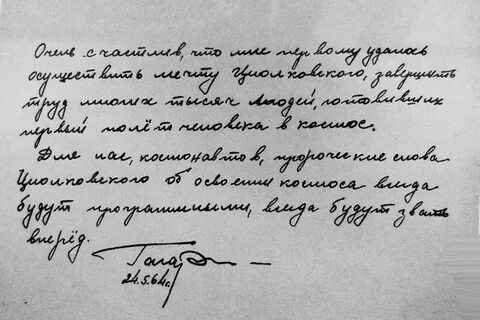 Очень счастлив, что мне первому удалось
осуществить мечту Циолковского, завершить
труд многих тысяч людей, готовивших
первый полёт человека в космос.
Для нас, космонавтов, пророческие слова
Циолковского об освоении космоса всегда
будут программными, всегда будут звать
вперёд.
Гагарин
24.5.64г.